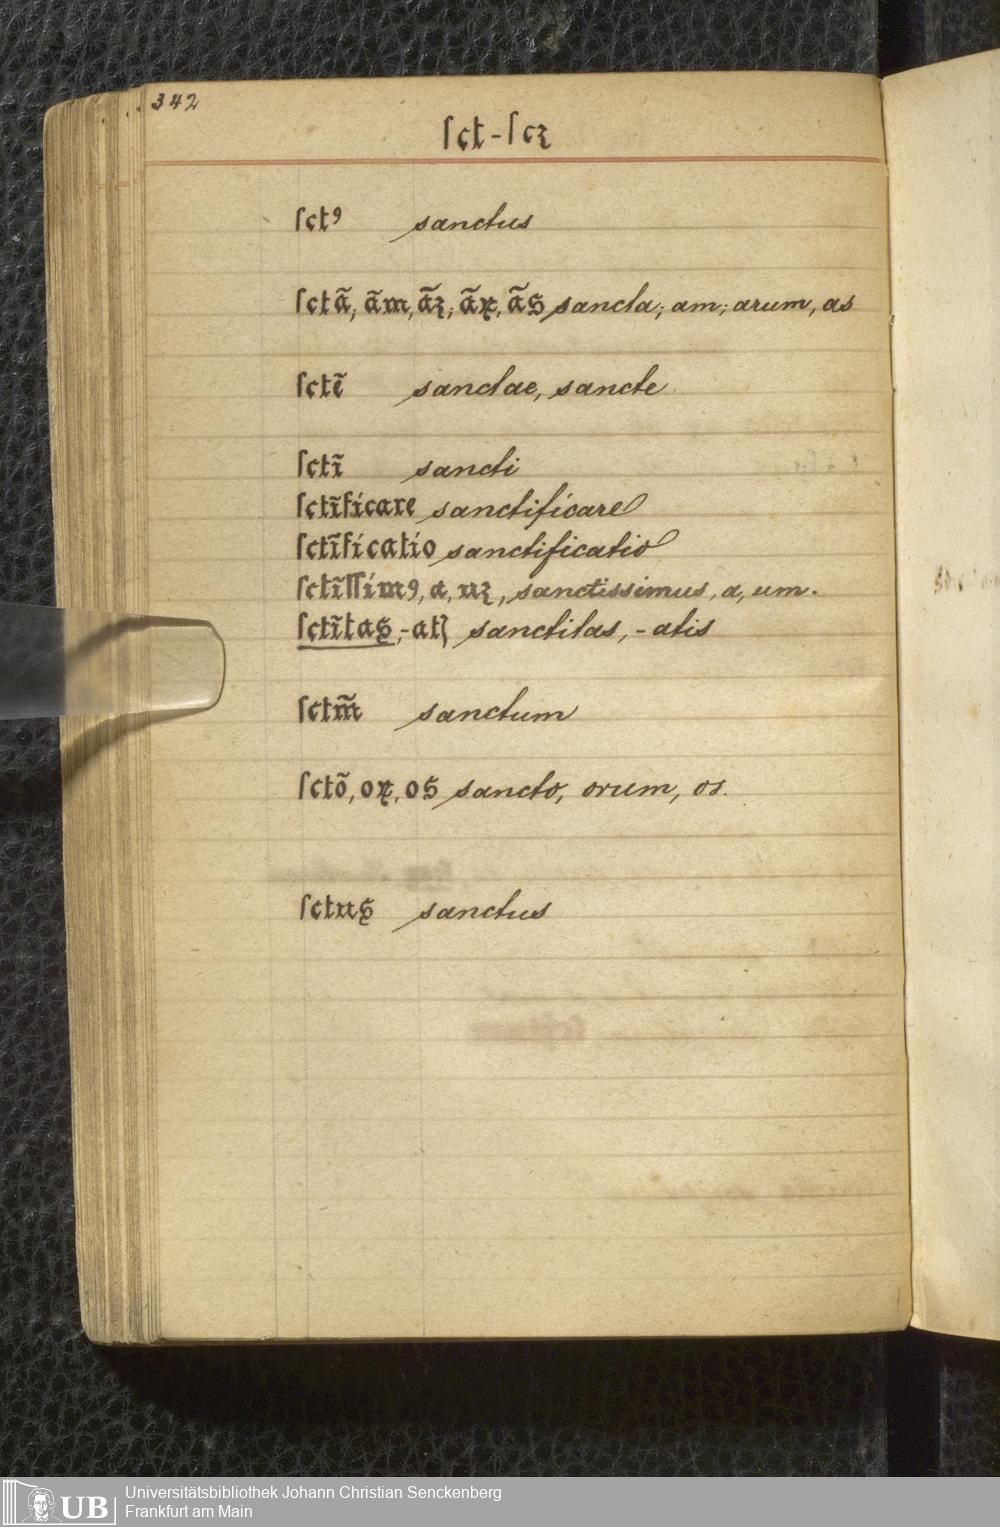 342
ſct-ſcꝫ
ſctꝰ sanctus
ſctã, ãm, ãꝫ; ãꝝ, ãs sancta; am; arum, as
ſctẽ sanctae, sancte
ſctĩ sancti
ſctĩficare sanctificare
ſctĩficatio sanctificatio
ſctĩſſimꝰ, a, uꝫ, sanctissimus, a, um.
ſctĩtas, -atꝭ sanctitas, -atis
ſctm̃ sanctum
ſctõ, oꝝ, os sancto, orum, os.
ſctus sanctus
UB
Universitätsbibliothek Johann Christian Senckenberg
Frankfurt am Main